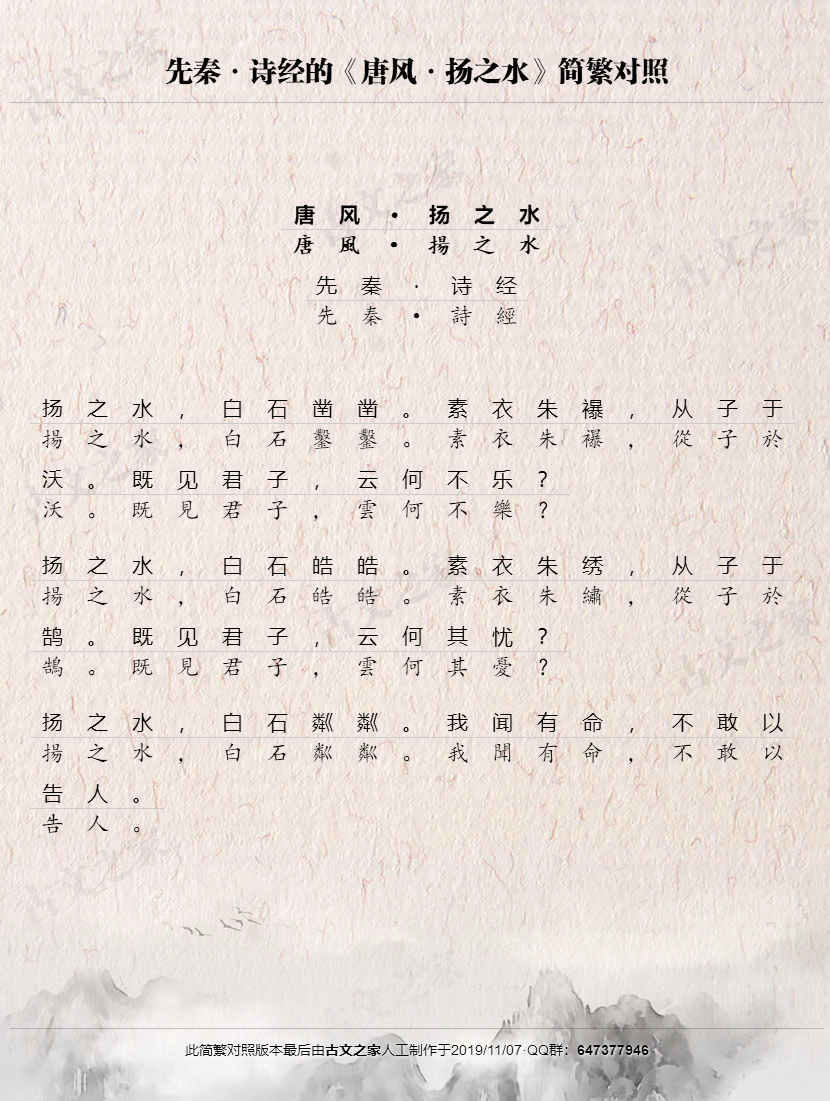 先秦·诗经的《唐风·扬之水》简繁对照
唐风·扬之水
唐風•揚之水
先秦·诗经
先秦•詩經
扬之水，白石凿凿。素衣朱襮，从子于
揚之水，白石鑿鑿。素衣朱襮，從子於
沃。既见君子，云何不乐？
沃。既見君子，雲何不樂？
扬之水，白石皓皓。素衣朱绣，从子于
揚之水，白石皓皓。素衣朱繡，從子於
鹄。既见君子，云何其忧？
鵠。既見君子，雲何其憂？
扬之水，白石粼粼。我闻有命，不敢以
揚之水，白石粼粼。我聞有命，不敢以
告人。
告人。
此简繁对照版本最后由古文之家人工制作于2019/11/07·QQ群：647377946
古文之家
古文之家
古文之家
古文之家
古文之家
古文之家
古文之家